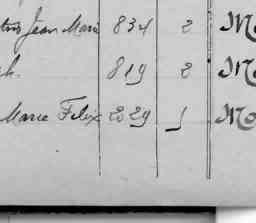 Jean Marie 834 2 M
h. 819 2 M
Marie Felix 2029 1 Mo